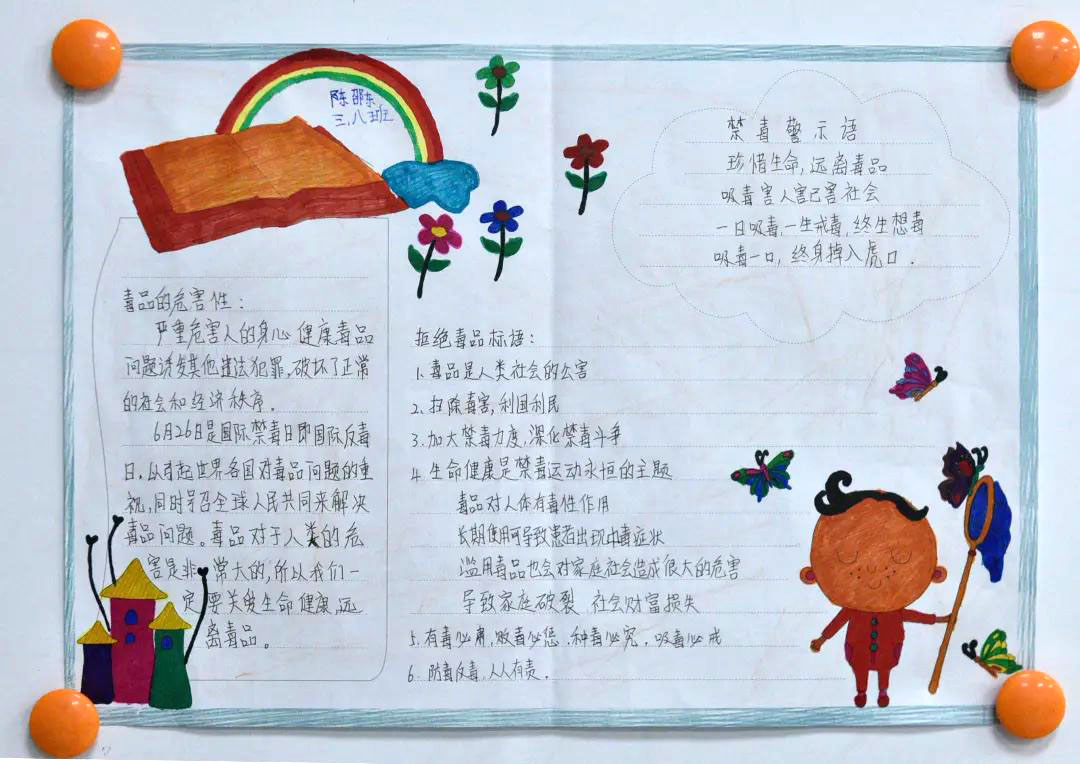 陈邵东
三.八班
禁毒警示语
珍惜生命,远离毒品
吸毒害人害己害社会
一日吸毒,一生戒毒,终生想毒
吸毒一口,终身掉入虎口.
毒品的危害性:
严重危害人的身心健康毒品
问题诱发其他违法犯罪,破坏了正常
的社会和经济秩序.
6月26日是国际禁毒日即国际反毒
日,从引起世界各国对毒品问题的重
视,同时号召全球人民共同来解决
毒品问题。毒品对于人类的危
害是非常大的,所以我们一
定要关爱生命健康,远
离毒品。
拒绝毒品标语:
1.毒品是人类社会的公害
2.扫除毒害,利国利民
3.加大禁毒力度,深化禁毒斗争
4.生命健康是禁毒运动永恒的主题
毒品对人体有毒性作用
长期使用可导致患者出现中毒症状
滥用毒品也会对家庭社会造成很大的危害
导致家庭破裂 社会财富损失
5.有毒必肃,贩毒必惩,种毒必究,吸毒必戒
6.防毒反毒,人人有责.